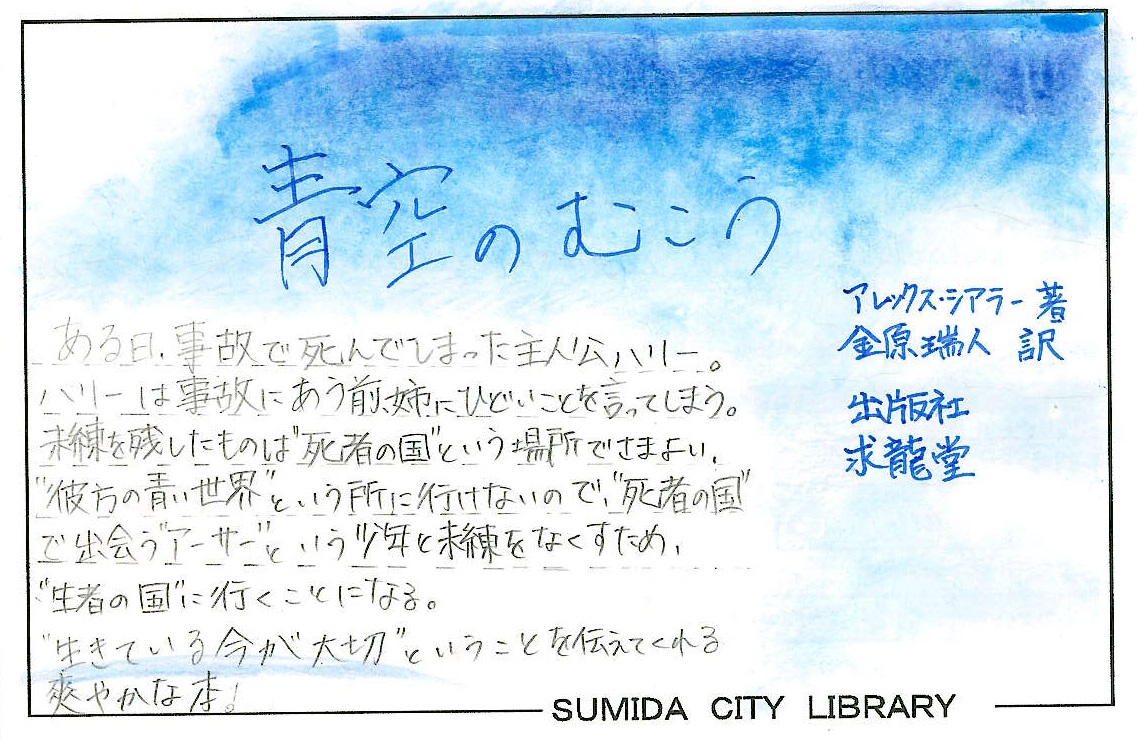 青空のむこう
アレックス・シアラー 著
金原瑞人 訳
出版社
求龍堂
ある日、事故で死んでしまった主人公ハリー。
ハリーは事故にあう前、姉にひどいことを言ってしまう。
未練を残したものは"死者の国"という場所でさまよい、
"彼方の青い世界"という所に行けないので、"死者の国"
で出会う"アーサー"という少年と未練をなくすため、
"生者の国"に行くことになる。
"生きている今が大切"ということを伝えてくれる
爽やかな本!
SUMIDA CITY LIBRARY